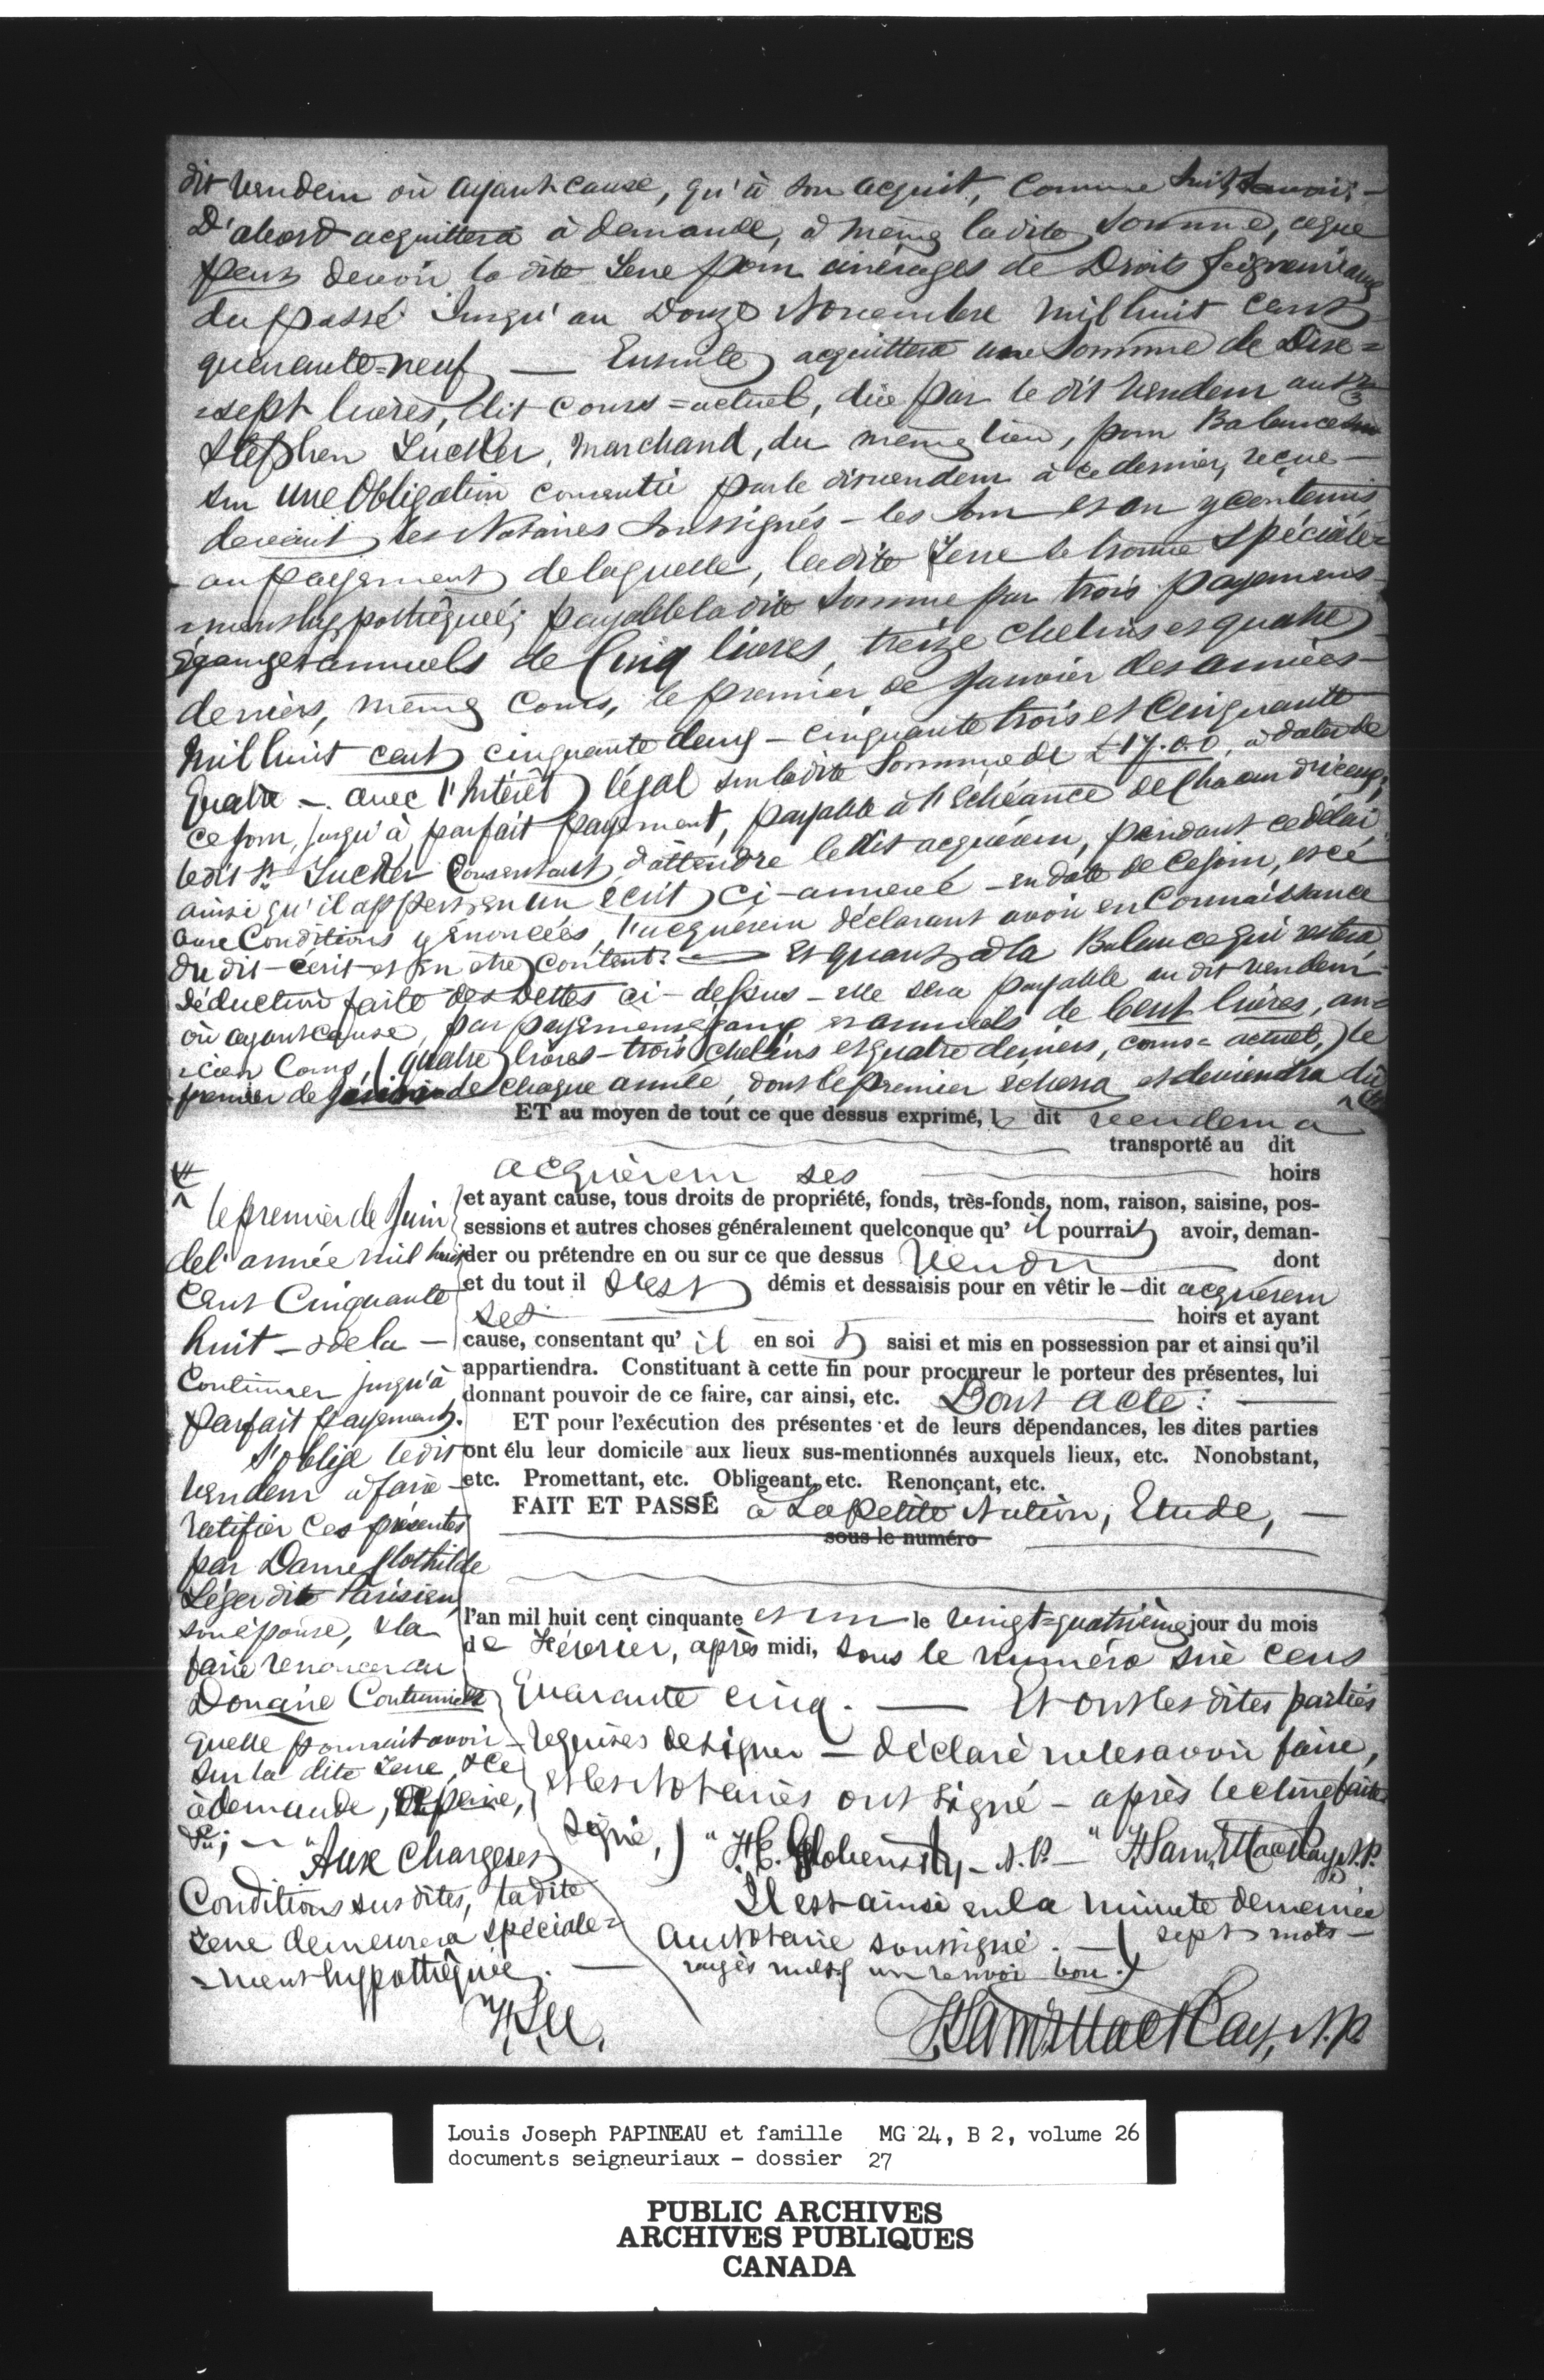 dit vendeur où ayant cause, qu'à son acquit, comme suit, savoir:-
D'abord acquittera à demande, à même la dite somme, ce que
peut devoir la dite Terre pour arrérages de Droits Seigneuriaux
du passé jusqu'au Douze Novembre mil huit cent
quarante=neuf — Ensuite acquittera une Somme de Dix=
=sept livres, dit cours=actuel, düe par le dit Vendeur au Sr
Stephen Tucker, Marchand, du même lieu, pour Balance
sur une Obligation consentie par le dit vendeur à ce dernier, reçue—
devant les Notaires Soussignés - les jour et an y contenus
au payement de laquelle, la dite Terre se trouve Spéciale=
=ment hypothéquée; payable la dite Somme par trois payemens
égaux et annuels de Cinq livres, treize chelins et quatre
deniers, même cours, le premier de Janvier des années—
Mil huit cent cinquante deux - cinquante trois et Cinquante
Quatre - avec l'Intérêt légal sur la dite Somme de £17.0.0, à dater de
ce jour, jusqu'à parfait payement, payable à l'échéance de Chacun d'iceux;
le dit Sr Tucker Consentant d'attendre le dit acquéreur, pendant ce délai,
ainsi qu'il appert en un écrit ci-annexé - en date de ce jour, et ce
aux Conditions y énoncées, l'acquéreur déclarant avoir eu Connaissance
du dit-écrit et en être content: — Et quant à la Balance qui restera
déduction faite des dettes ci-dessus - elle sera payable au dit vendeur
où ayant cause, par payemens égaux et annuels de Cent livres, an=
=cien Cours, (quatre livres - trois chelins et quatre deniers, cours=actuel,) le
premier de de chaque année, dont le premier echera et deviendra dû
ET au moyen de tout ce que dessus exprimé, le dit vendeur a
transporté au dit
acquéreur ses hoirs
et ayant cause, tous droits de propriété, fonds, très-fonds, nom, raison, saisine, pos-
sessions et autres choses généralement quelconque qu' il pourrait avoir, deman-
der ou prétendre en ou sur ce que dessus Vendu dont
et du tout il s'est démis et dessaisis pour en vêtir le — dit acquéreur
ses hoirs et ayant
cause, consentant qu' il en soit saisi et mis en possession par et ainsi qu'il
appartiendra. Constituant à cette fin pour procureur le porteur des présentes, lui
donnant pouvoir de ce faire, car ainsi, etc. Dont acte:
ET pour l'exécution des présentes et de leurs dépendances, les dites parties
ont élu leur domicile aux lieux sus-mentionnés auxquels lieux, etc. Nonobstant,
etc. Promettant, etc. Obligeant, etc. Renonçant, etc.
FAIT ET PASSÉ à La Petite Nation, Etude, —
sous le numéro
l'an mil huit cent cinquante et un le vingt=quatrième jour du mois
de Février, après midi, sous le numéro six cent
Quarante cinq. — Et ont les dites parties
requises de signer — déclaré ne le savoir faire,
et les Notaires ont signé - après lecture faite
Signé,) "H.E. Globensky - N.P. - "F. Sam. MacKay, N.P.
Il est ainsi en la minute demeurée
au Notaire soussigné. — (sept mots—
rayés nuls & un renvoi bon.)
F. Sam. MacKay, N.P.
le premier de Juin
de l'année mil huit
cent Cinquante
huit - & de la —
Continuer jusqu'à
parfait payement.
S'oblige le dit
Vendeur à faire
ratifier ces présentes
par Dame Clothilde
Léger dite Parisien
son épouse, & la
faire renoncer au
Douaire Coutumier
quelle pourrait avoir
sur la dite Terre, & ce
à demande, à peine,
&c; —
"Aux Charges &
Conditions sus dites, la dite
Terre demeurera spéciale=
=ment hypothéquée. —
Louis Joseph PAPINEAU et famille MG 24, B 2, volume 26
documents seigneuriaux - dossier 27
PUBLIC ARCHIVES
ARCHIVES PUBLIQUES
CANADA